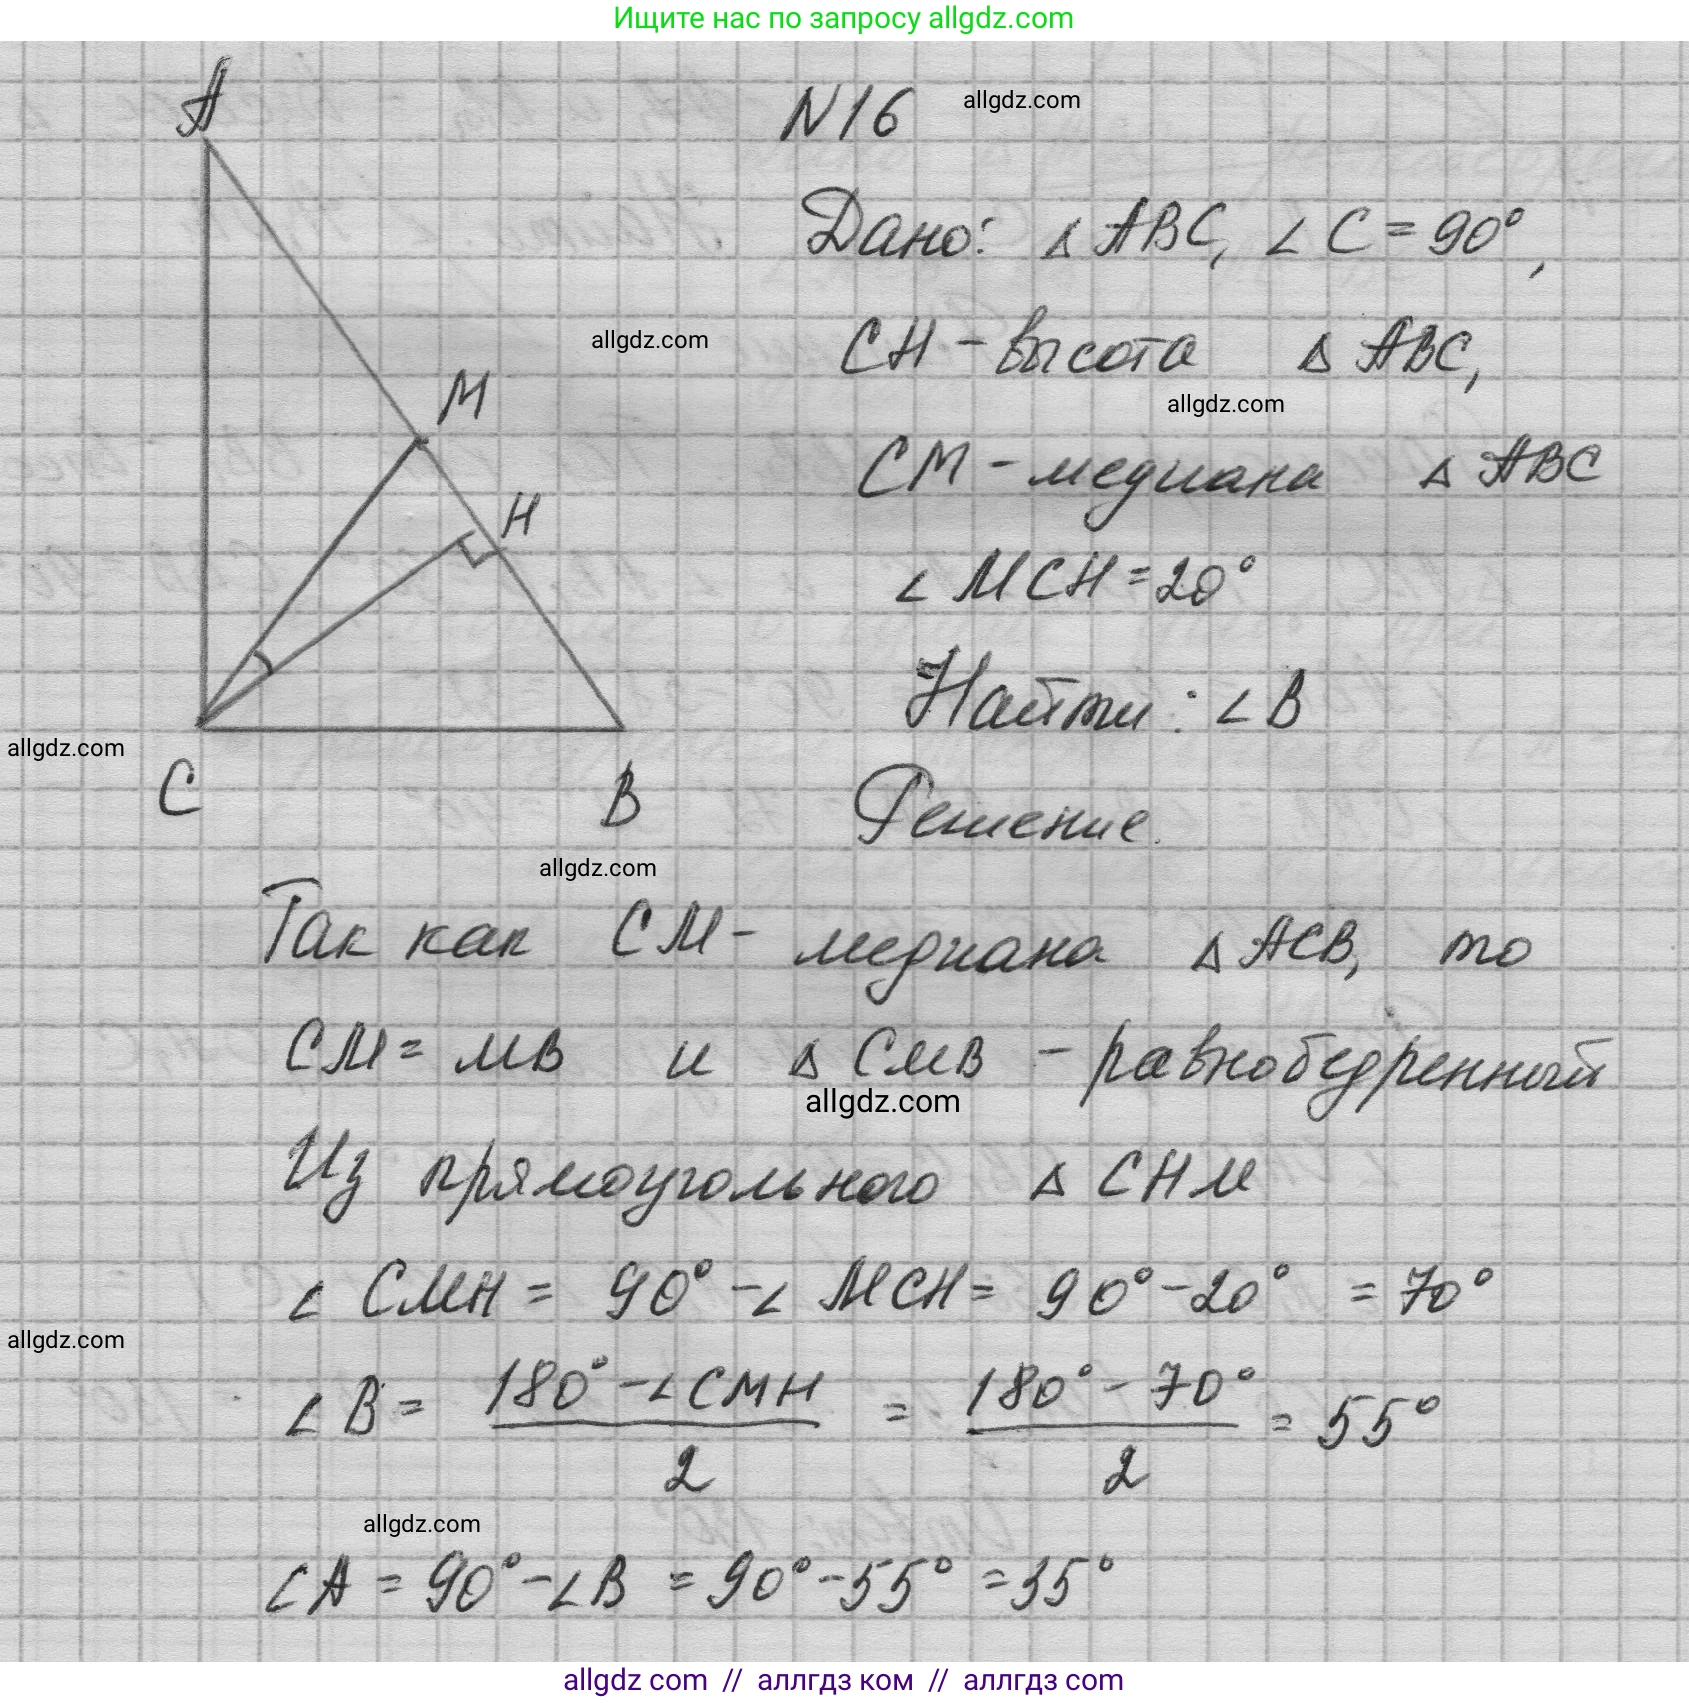 Ищите нас по запросу allgdz.com
A
N16
allgdz.com
Дано: △ABC, ∠C = 90°,
allgdz.com
CH - высота △ABC,
M
allgdz.com
CM - медиана △ABC
H
∠MCH = 20°
Найти: ∠B
allgdz.com
C
B
Решение.
allgdz.com
Так как CM - медиана △ACB, то
CM = MB и △CMB - равнобедренный
allgdz.com
Из прямоугольного △CHM
∠CMH = 90° - ∠MCH = 90° - 20° = 70°
allgdz.com
∠B = (180° - ∠CMH)/2 = (180° - 70°)/2 = 55°
allgdz.com
∠A = 90° - ∠B = 90° - 55° = 35°
allgdz com // аллгдз ком // аллгдз com